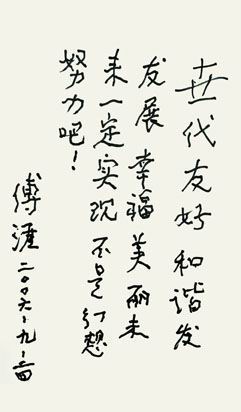 世代友好和谐发
发展幸福美丽未
来一定实现不是幻想
努力吧！
傅涯二〇〇六、九、二四